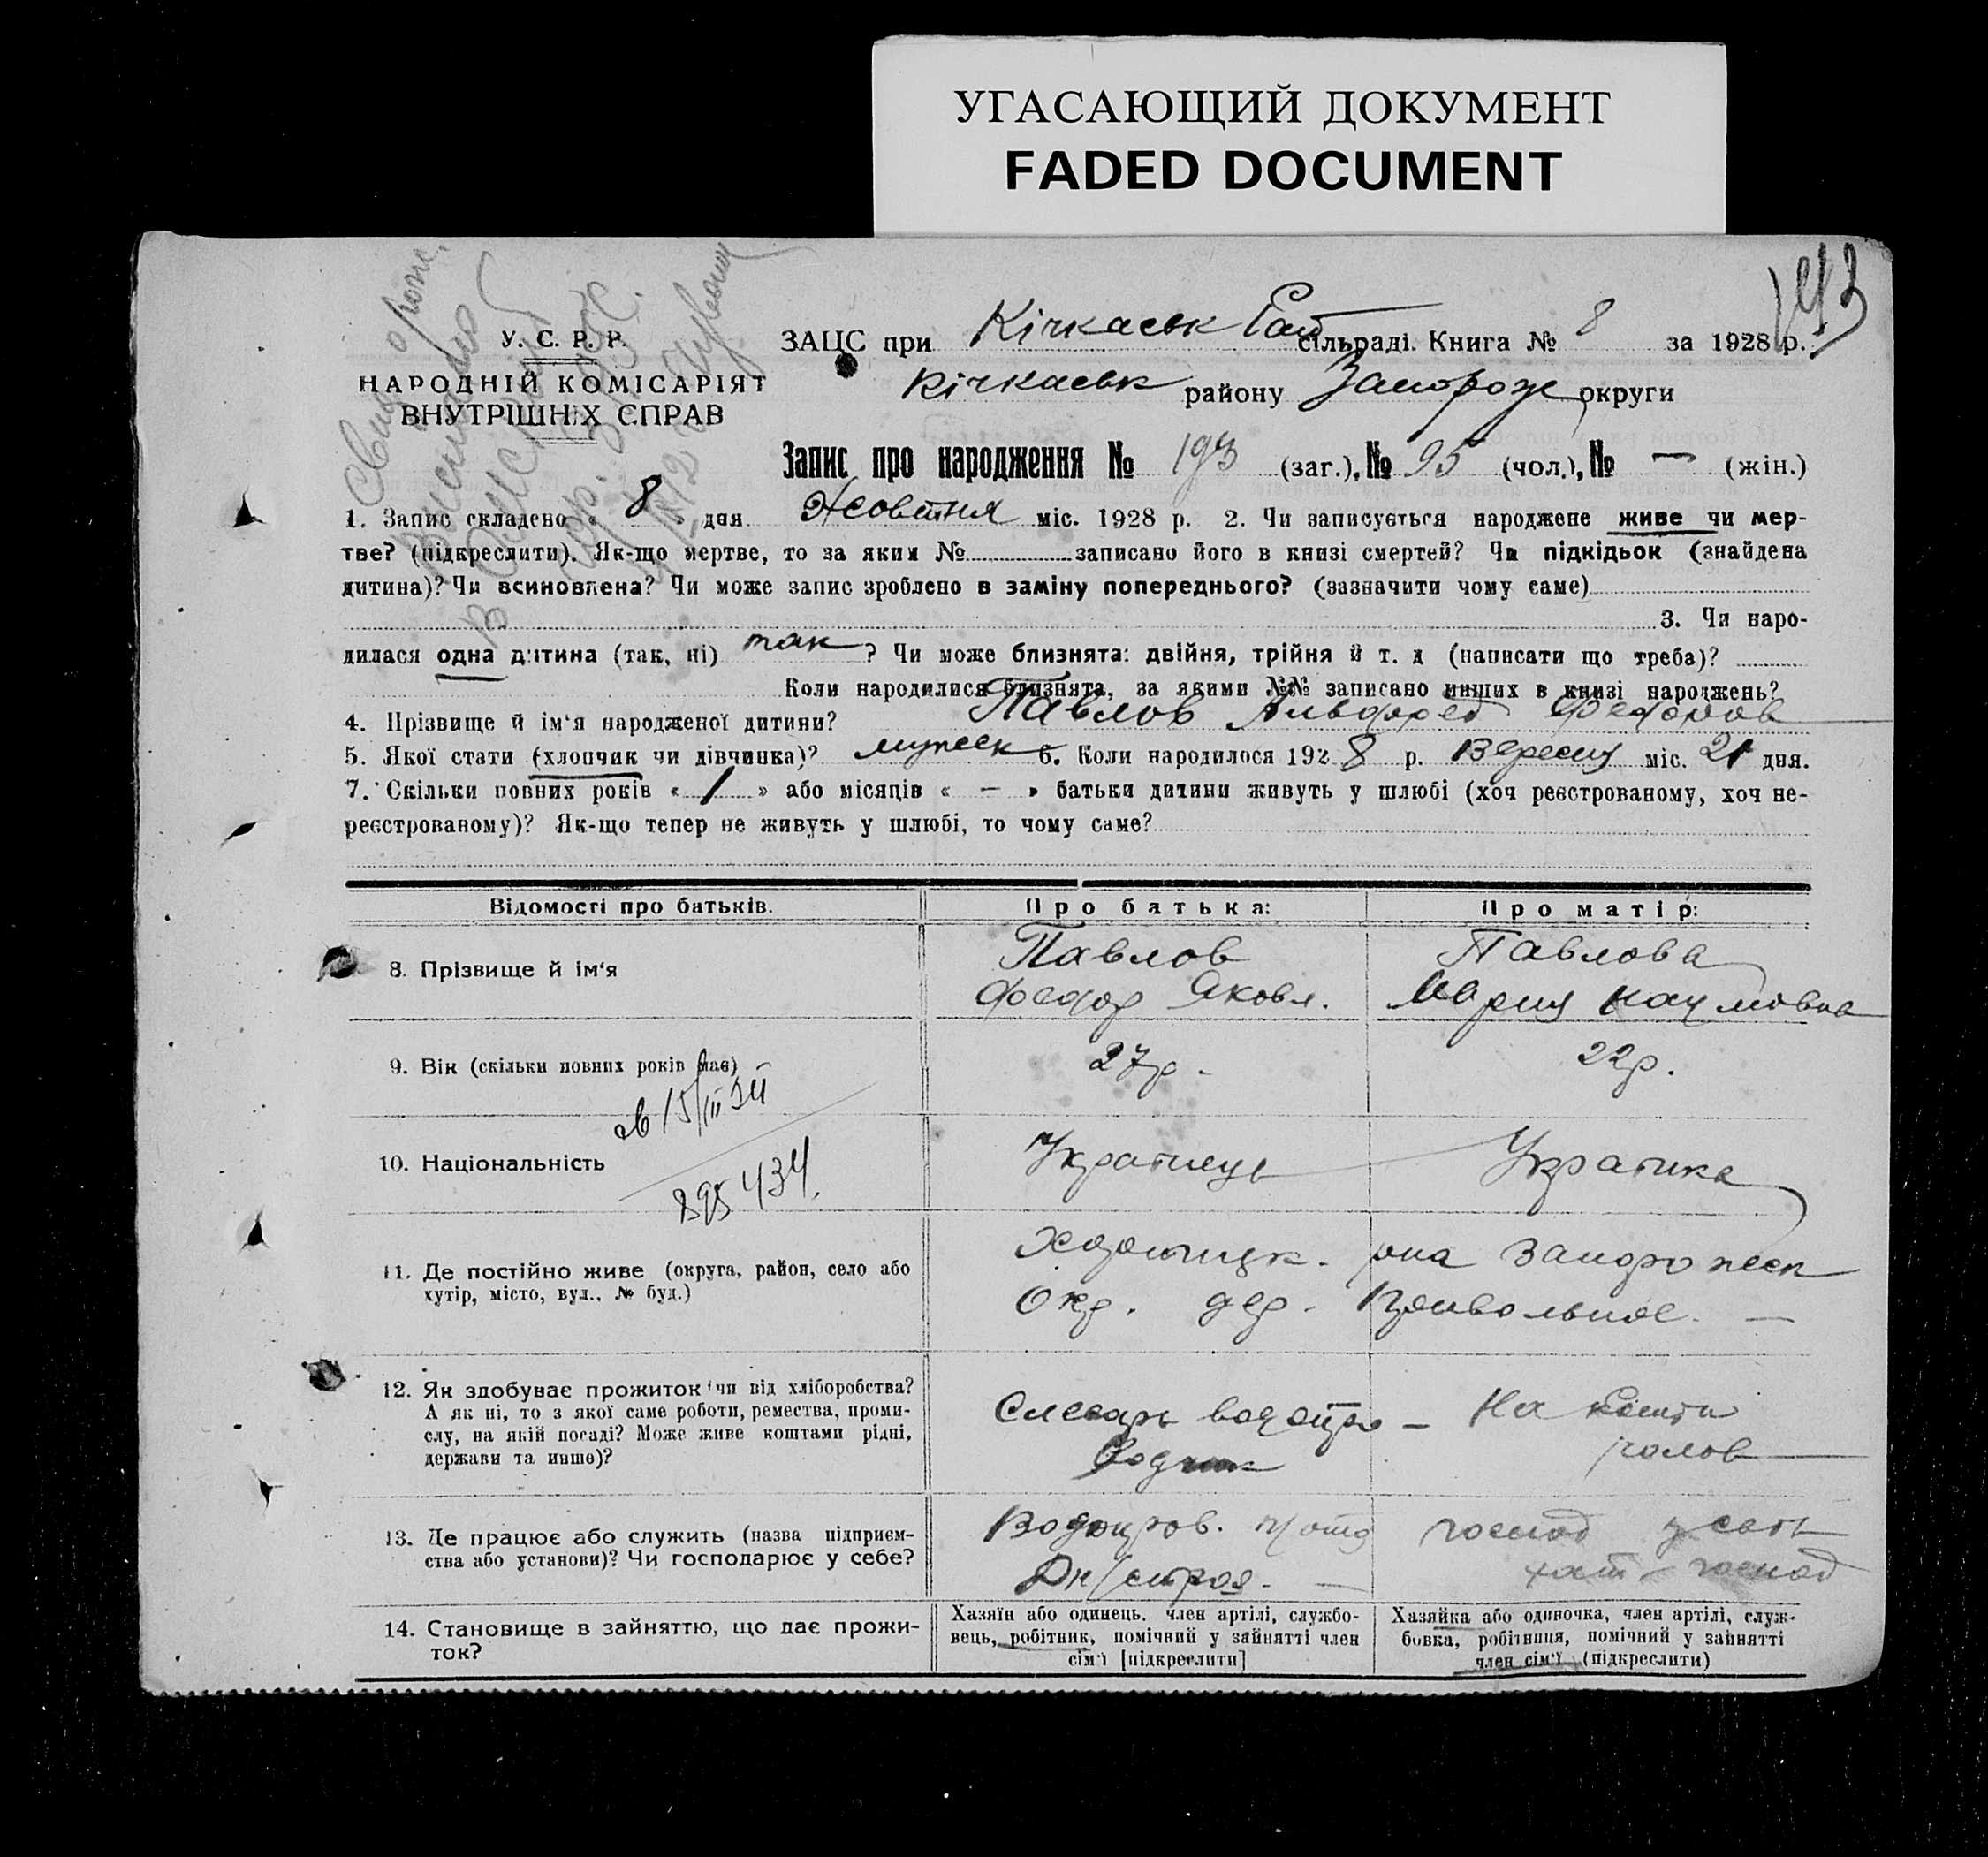 УГАСАЮЩИЙ ДОКУМЕНТ
FADED DOCUMENT
У. С. Р. Р.
НАРОДНІЙ КОМІСАРІЯТ
ВНУТРІШНІХ СПРАВ
ЗАЦС при Кічкаськ сільраді. Книга № 8 за 1928 р.
Кічкаськ району Запорож округи
Запис про народження № 193 (заг.), № 95 (чол.), № — (жін.)
1. Запис складено « 8 » дня Жовтня міс. 1928 р. 2. Чи записується народжене живе чи мер-
тве? (підкреслити). Як-що мертве, то за яким № записано його в книзі смертей? Чи підкідьок (знайдена
дитина)? Чи всиновлена? Чи може запис зроблено в заміну попереднього? (зазначити чому саме)
3. Чи наро-
дилася одна дитина (так, ні) так ? Чи може близнята: двійня, трійня й т. д (написати що треба)?
Коли народилися близнята, за якими №№ записано инших в книзі народжень?
4. Прізвище й ім'я народженої дитини? Павлов Альфред Федоров
5. Якої стати (хлопчик чи дівчинка)? мужеск 6. Коли народилося 1928 р. Вересня міс. 21 дня.
7. Скільки повних років « 1 » або місяців « — » батьки дитини живуть у шлюбі (хоч реєстрованому, хоч не-
реєстрованому)? Як-що тепер не живуть у шлюбі, то чому саме?
Відомості про батьків. Про батька: Про матір:
8. Прізвище й ім'я Павлов Павлова
Федор Яковл. Мария Наумовна
9. Вік (скільки повних років має) 27р. 22р.
10. Національність Українець Українка
895434.
11. Де постійно живе (округа, район, село або
хутір, місто, вул., № буд.)
Хортицк. рна Запорожск
Окр. дер. Привольное. —
12. Як здобуває прожиток чи від хліборобства?
А як ні, то з якої саме роботи, ремества, проми-
слу, на якій посаді? Може живе коштами рідні,
держави та инше)?
Слесарь — На кошти
чолов
13. Де працює або служить (назва підприєм-
ства або установи)? Чи господарює у себе?
Водопров.
Дн/строя. — господ
14. Становище в зайняттю, що дає прожи-
ток?
Хазяїн або одинець. член артілі, службо-
вець, робітник, помічний у зайнятті член
сім'ї [підкреслити]
Хазяйка або одиночка, член артілі, служ-
бовка, робітниця, помічний у зайнятті
член сім'ї (підкреслити)